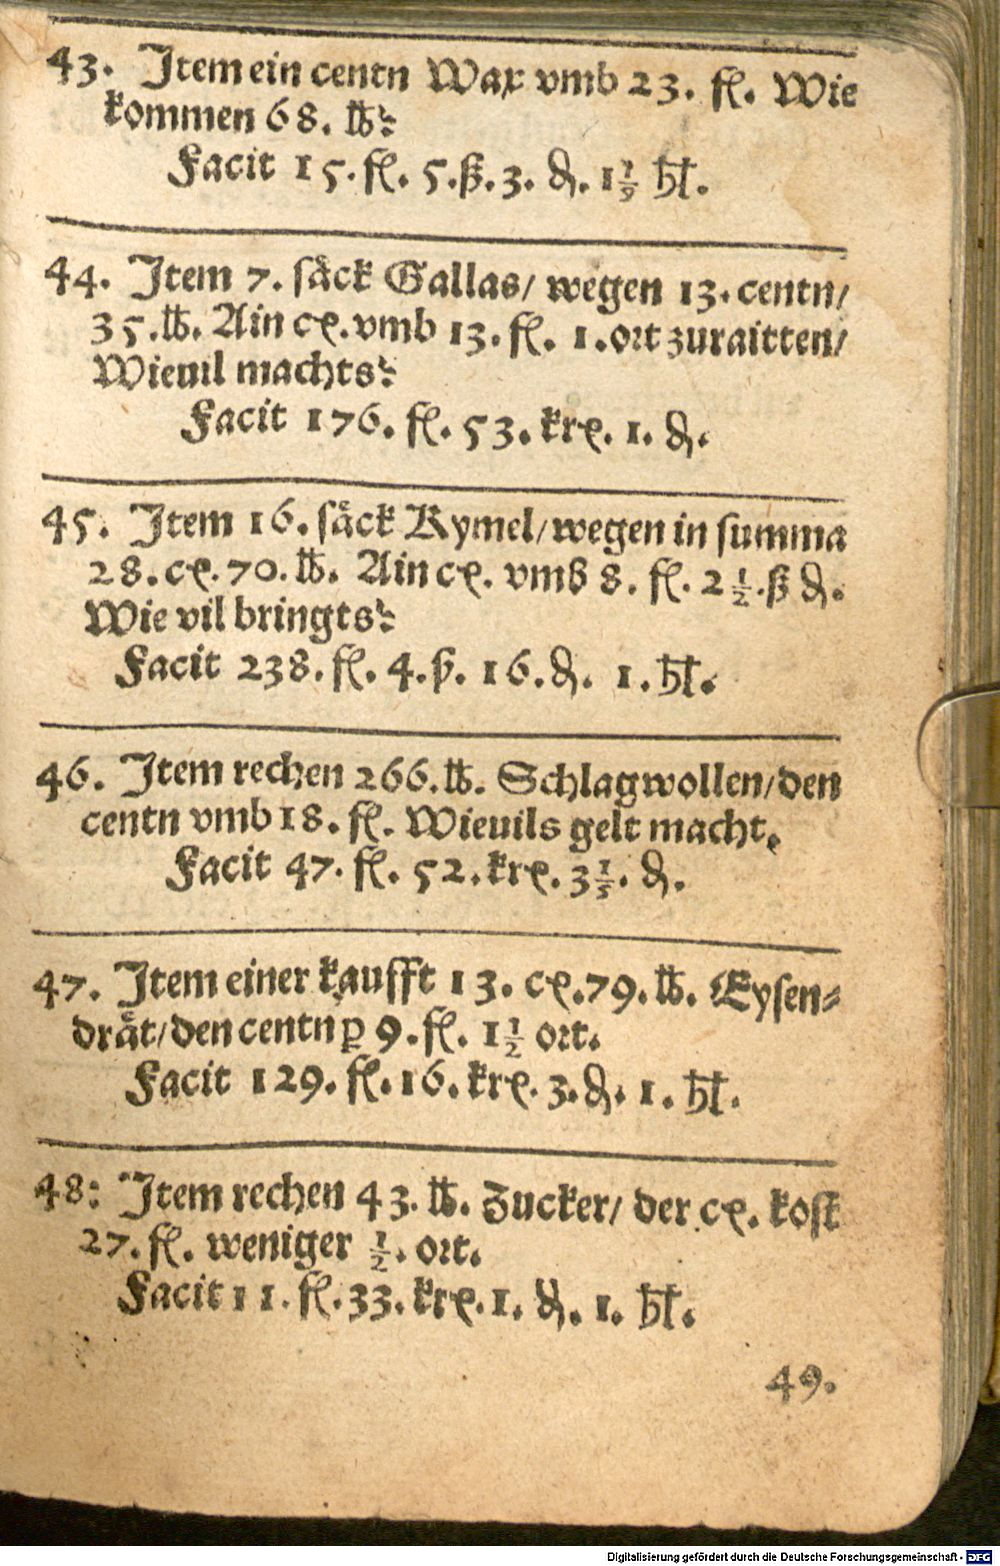 43. Item ein centn Wax vmb 23. fl. Wie
kommen 68. lb?
Facit 15. fl. 5. ß. 3. ₰. 1 1/9 hl.
44. Item 7. såck Gallas/ wegen 13. centn/
35. lb. Ain cȝ. vmb 13. fl. 1. ort zuraitten/
Wieuil machts?
Facit 176. fl. 53. krȝ. 1. ₰.
45. Item 16. såck Kymel/ wegen in summa
28. cȝ. 70. lb. Ain cȝ. vmb 8. fl. 2 1/2. ß ₰.
Wie vil bringts?
Facit 238. fl. 4. ß. 16. ₰. 1. hl.
46. Item rechen 266. lb. Schlagwollen/ den
centn vmb 18. fl. Wieuils gelt macht.
Facit 47. fl. 52. krȝ. 3 1/5. ₰.
47. Item einer kaufft 13. cȝ. 79. lb. Eysen⸗
dråt/ den centn ꝑ 9. fl. 1 1/2 ort.
Facit 129. fl. 16. krȝ. 3. ₰. 1. hl.
48: Item rechen 43. lb. Zucker/ der cȝ. kost
27. fl. weniger 1/2. ort.
Facit 11. fl. 33. krȝ. 1. ₰. 1. hl.
49.
Digitalisierung gefördert durch die Deutsche Forschungsgemeinschaft - DFG